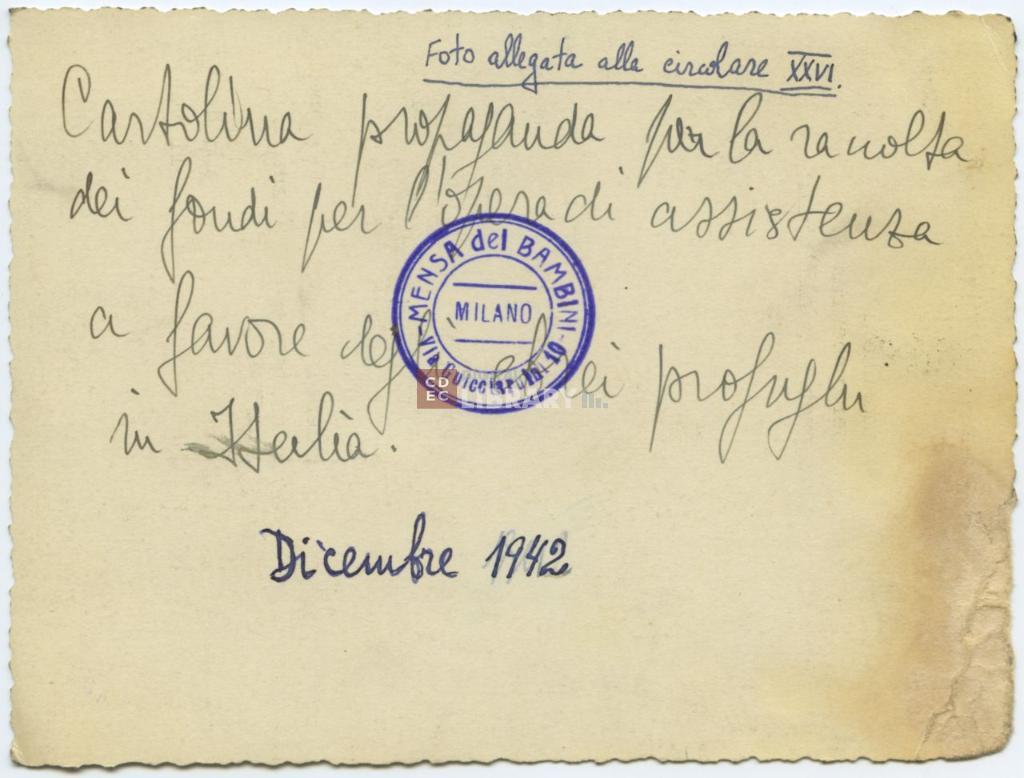 Foto allegata alla circolare XXVI.
Cartolina propaganda per la raccolta
dei fondi per l'opera di assistenza
a favore degli ebrei profughi
in Italia.
MENSA dei BAMBINI
MILANO
Via Guicciardini 10
CDEC LIBRARY
Dicembre 1942